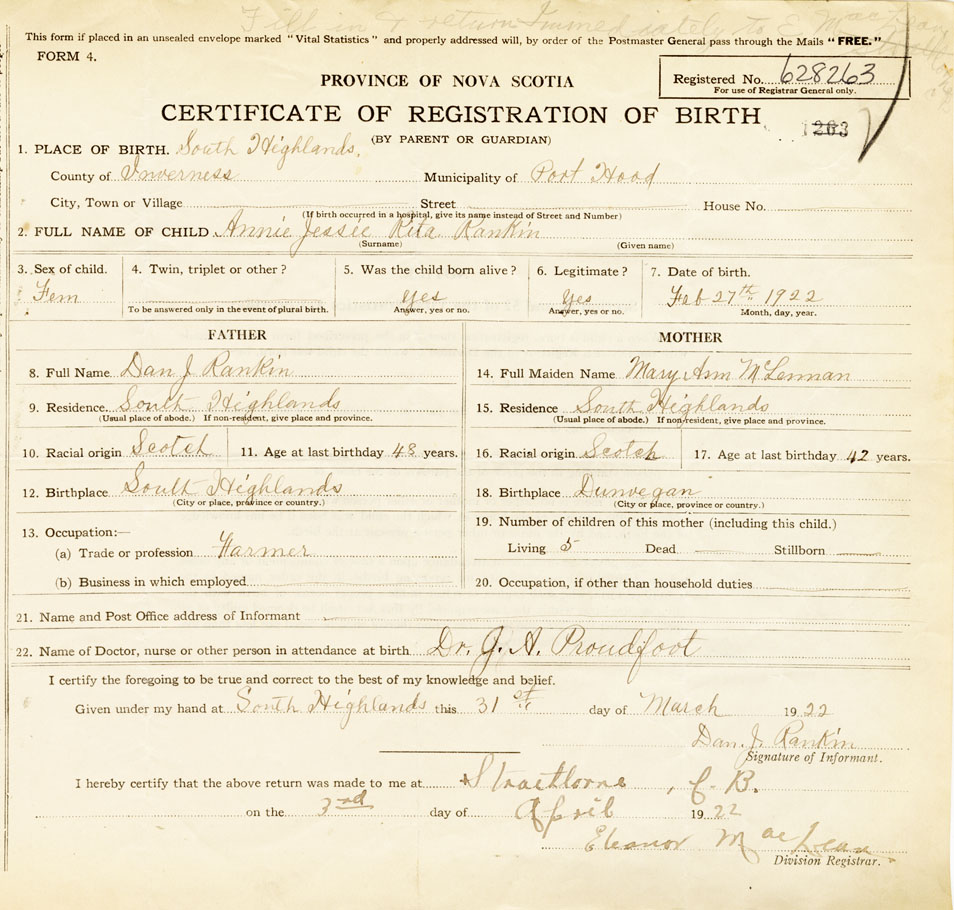 Fill in & return Immediately to E. MacLean
This form if placed in an unsealed envelope marked "Vital Statistics" and properly addressed will, by order of the Postmaster General pass through the Mails "FREE."
FORM 4.
Registered No. 628263
For use of Registrar General only.
PROVINCE OF NOVA SCOTIA
CERTIFICATE OF REGISTRATION OF BIRTH
1263
(BY PARENT OR GUARDIAN)
1. PLACE OF BIRTH. South Highlands.
County of Inverness Municipality of Port Hood
City, Town or Village Street House No.
(If birth occurred in a hospital, give its name instead of Street and Number)
2. FULL NAME OF CHILD Annie Jessie Rita Rankin
(Surname) (Given name)
3. Sex of child. 4. Twin, triplet or other? 5. Was the child born alive? 6. Legitimate? 7. Date of birth.
Fem yes Yes Feb 27th 1922
To be answered only in the event of plural birth. Answer, yes or no. Answer, yes or no. Month, day, year.
FATHER
8. Full Name Dan J Rankin
9. Residence. South Highlands
(Usual place of abode.) If non-resident, give place and province.
10. Racial origin Scotch 11. Age at last birthday 48 years.
12. Birthplace South Highlands
(City or place, province or country.)
13. Occupation:—
(a) Trade or profession Farmer
(b) Business in which employed
MOTHER
14. Full Maiden Name Mary Ann McLennan
15. Residence South Highlands
(Usual place of abode.) If non-resident, give place and province.
16. Racial origin Scotch 17. Age at last birthday 42 years.
18. Birthplace Dunvegan
(City or place, province or country.)
19. Number of children of this mother (including this child.)
Living 5 Dead Stillborn
20. Occupation, if other than household duties
21. Name and Post Office address of Informant
22. Name of Doctor, nurse or other person in attendance at birth Dr. J. A. Proudfoot
I certify the foregoing to be true and correct to the best of my knowledge and belief.
Given under my hand at South Highlands this 31st day of March 1922
Dan. J. Rankin
Signature of Informant.
I hereby certify that the above return was made to me at Strathlorne, C. B.
on the 3rd day of April 1922
Eleanor MacLean
Division Registrar.